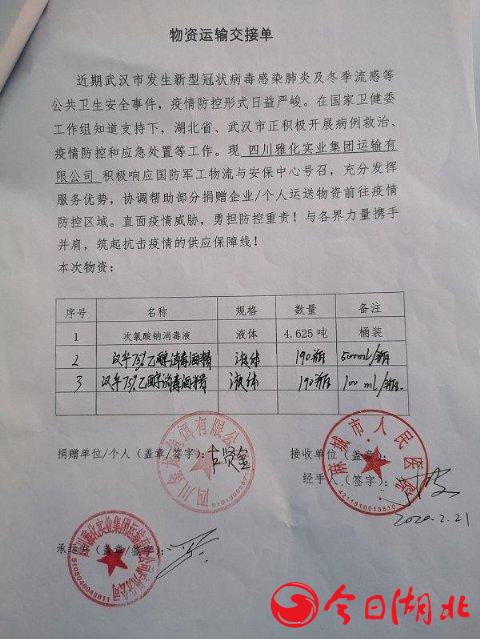 物资运输交接单
近期武汉市发生新型冠状病毒感染肺炎及冬季流感等
公共卫生安全事件，疫情防控形式日益严峻。在国家卫健委
工作组知道支持下，湖北省、武汉市正积极开展病例救治、
疫情防控和应急处置等工作。现 四川雅化实业集团运输有
限公司 积极响应国防军工物流与安保中心号召，充分发挥
服务优势，协调帮助部分捐赠企业/个人运送物资前往疫情
防控区域。直面疫情威胁，勇担防控重责！与各界力量携手
并肩，筑起抗击疫情的供应保障线！
本次物资：
序号 名称 规格 数量 备注
1 次氯酸钠消毒液 液体 4.625 吨 桶装
2 75%乙醇消毒酒精 液体 190瓶 500ml/瓶
3 75%乙醇消毒酒精 液体 190瓶 100ml/瓶
捐赠单位/个人（盖章/签字）：
接收单位（盖章）：
麻城市人民医院
4211810013810
经手人（签字）：
2020.2.21
承运方（盖章/签字）：
四川雅化实业集团运输有限公司
今日湖北